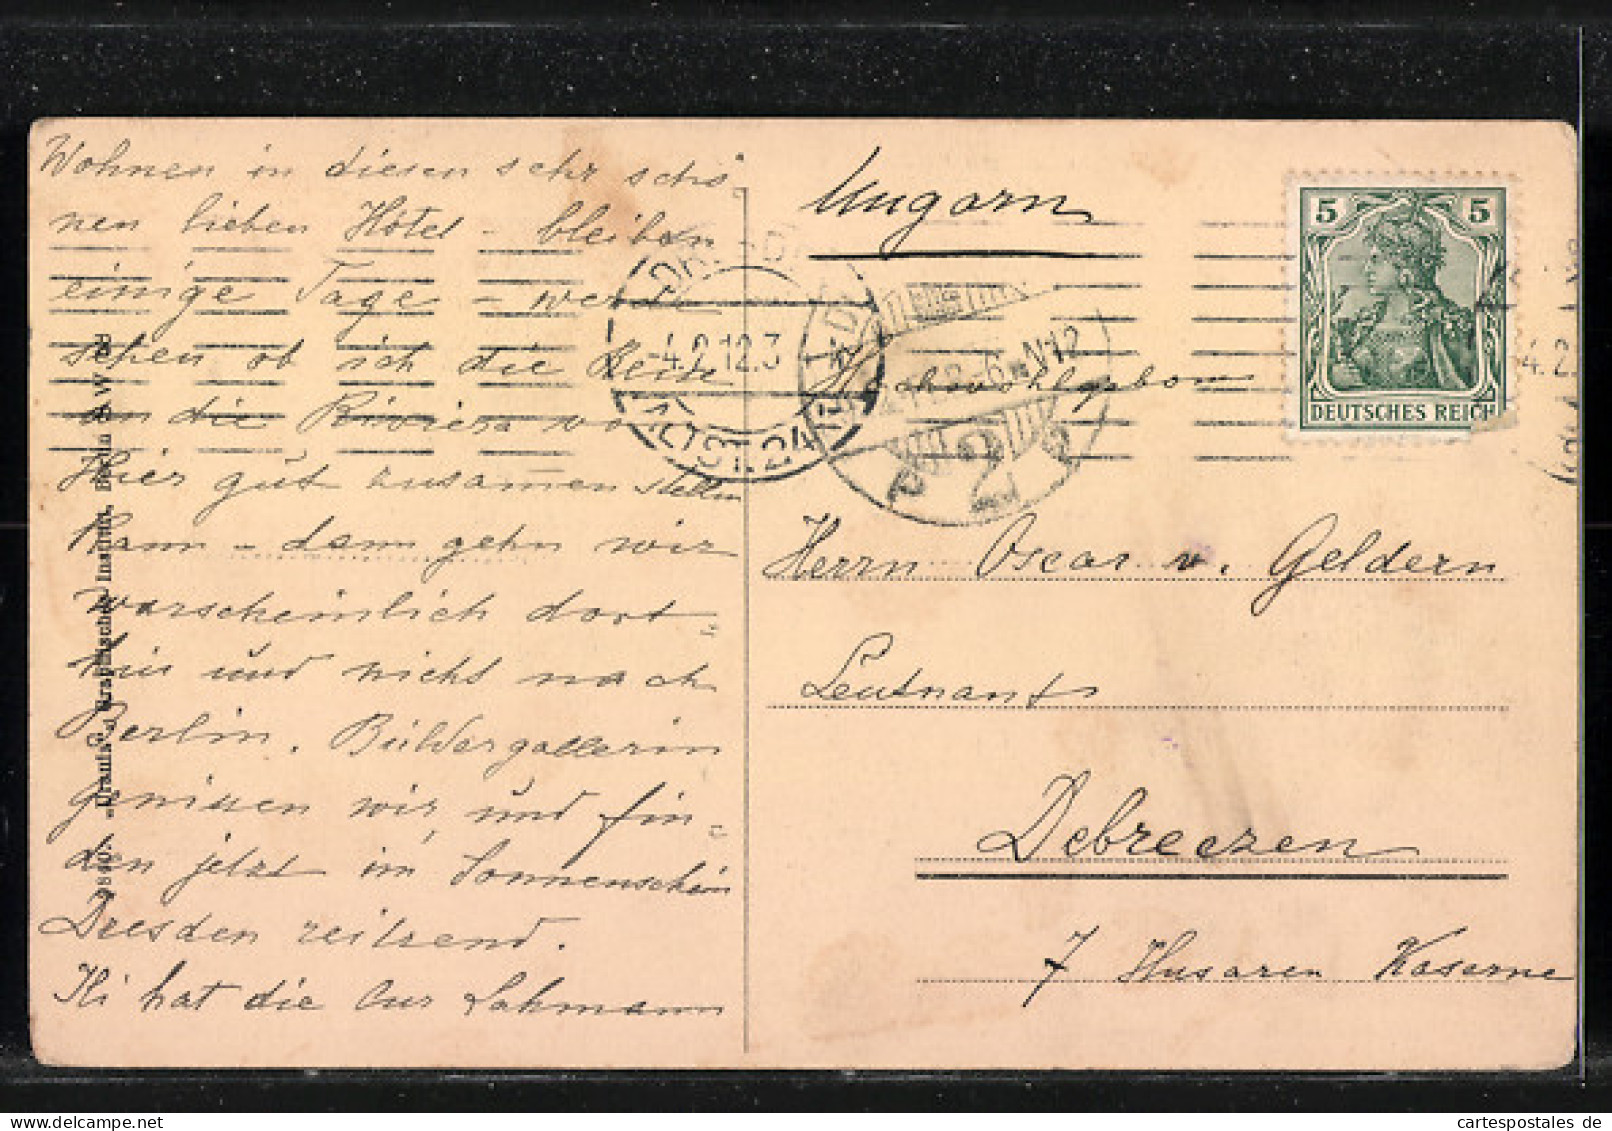 Wohnen in diesen sehr schö-
nen lieben Hôtel - bleiben
einige Tage - werde
sehen ob ich die Reise
an die Riviera von
Hier gut zusamenstellen
Kann - dann gehn wir
warscheinlich dort-
hin und nicht nach
Berlin. Bildergallerin
genissen wir und fin-
den jetzt im Sonnenschein
Dresden reitzend.
hat die Cur Lahmann
"Graphisches Institut, Berlin S.W. 68
Ungarn
DRESDEN
-4.2.12.3
ALTST. 24
5 5
DEUTSCHES REICH
4.2
2
Hochwohlgeboren
Herrn Oscar v. Geldern
Leutnant
Debreczen
7 Husaren Kaserne
cartespostales de